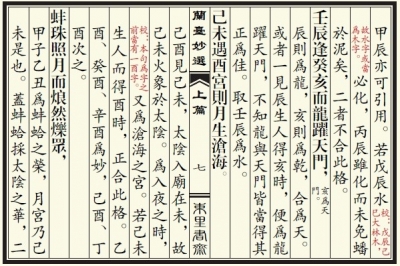 甲辰亦可引用。若戊辰水
故水字或當為木字。
必化，丙辰雖化而未免蟠
校：戊辰己巳大林木，
於泥矣，二者不合此格。
壬辰逢癸亥而龍躍天門，
亥為天門。
辰則為龍，亥則為乾，合為天。
或者一見辰生人得亥時，便為龍
躍天門，不知龍與天門皆當得其
正為佳。取壬辰為水。
己未遇酉宮則月生滄海。
蘭臺妙選
上篇
七
東里書齋
己酉見己未，太陰入廟在未，故
己未火象於太陰。為入夜之時，
又為滄海之宮。若己未
校：本句為字之前當有一酉字。
生人而得酉時，正合此格。乙
酉、癸酉、辛酉為妙，己酉、丁
酉次之。
蚌珠照月而烺然爍眾，
甲子乙丑為蚌蛤之榮，月宮乃己
未是也。蓋蚌蛤採太陰之華，二